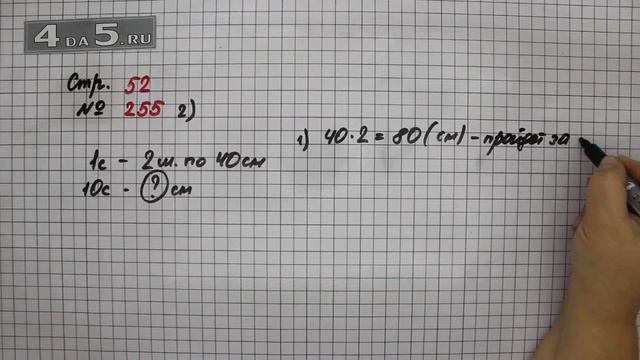 4DA5.RU
Стр. 52
№ 255 2)
1с - 2 ш. по 40 см
10с - ? см
1) 40·2=80(см)-пройдёт за